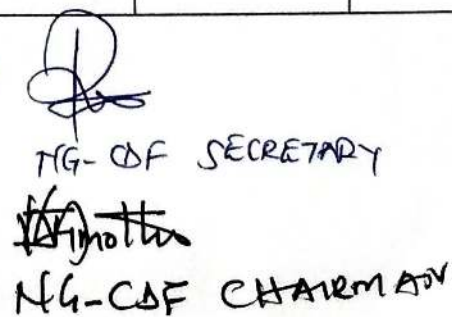 NG-CDF SECRETARY
NG-CDF CHAIRMAN